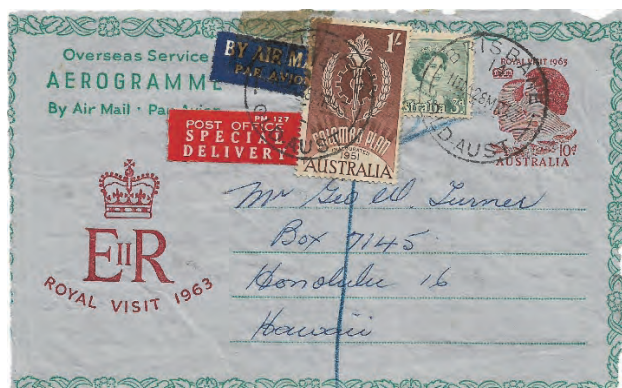 Overseas Service
AEROGRAMME
By Air Mail · Par Avion
BY AIR MAIL
PAR AVION
POST OFFICE PM 127
SPECIAL
DELIVERY
1/-
COLOMBO PLAN
INAUGURATED
1951
AUSTRALIA
BRISBANE
QLD. AUST
ROYAL VISIT 1963
10d
AUSTRALIA
EIIR
ROYAL VISIT 1963
Mr Geo W. Turner
Box 7145
Honolulu 16
Hawaii